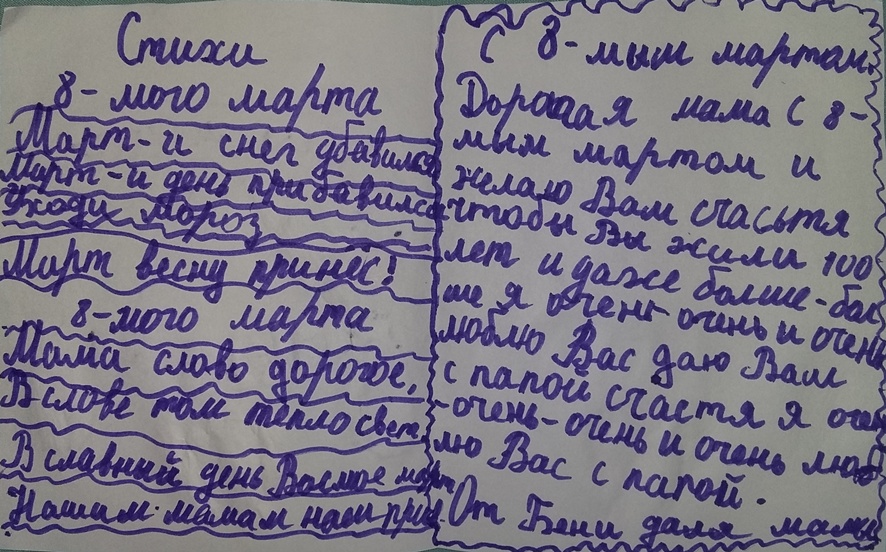 Стихи
8-мого марта
Март-и снег убавился
Март-и день прибавился
Уходи Мороз
Март весну принёс!
8-мого марта
Мама слово дорогое,
В слове том тепло свет
В славный день Восмое марта
Нашим мамам наш при
С 8-мым мартом
Дорогая мама с 8-
мым мартом и
желаю Вам счасьтя
чтобы Вы жили 100
лет и даже болше-бас
ше я очень-очень и очень
люблю Вас даю Вам
с папой счастя я очен
-очень-очень и очень люб
лю Вас с папой.
От Бени даля мамы